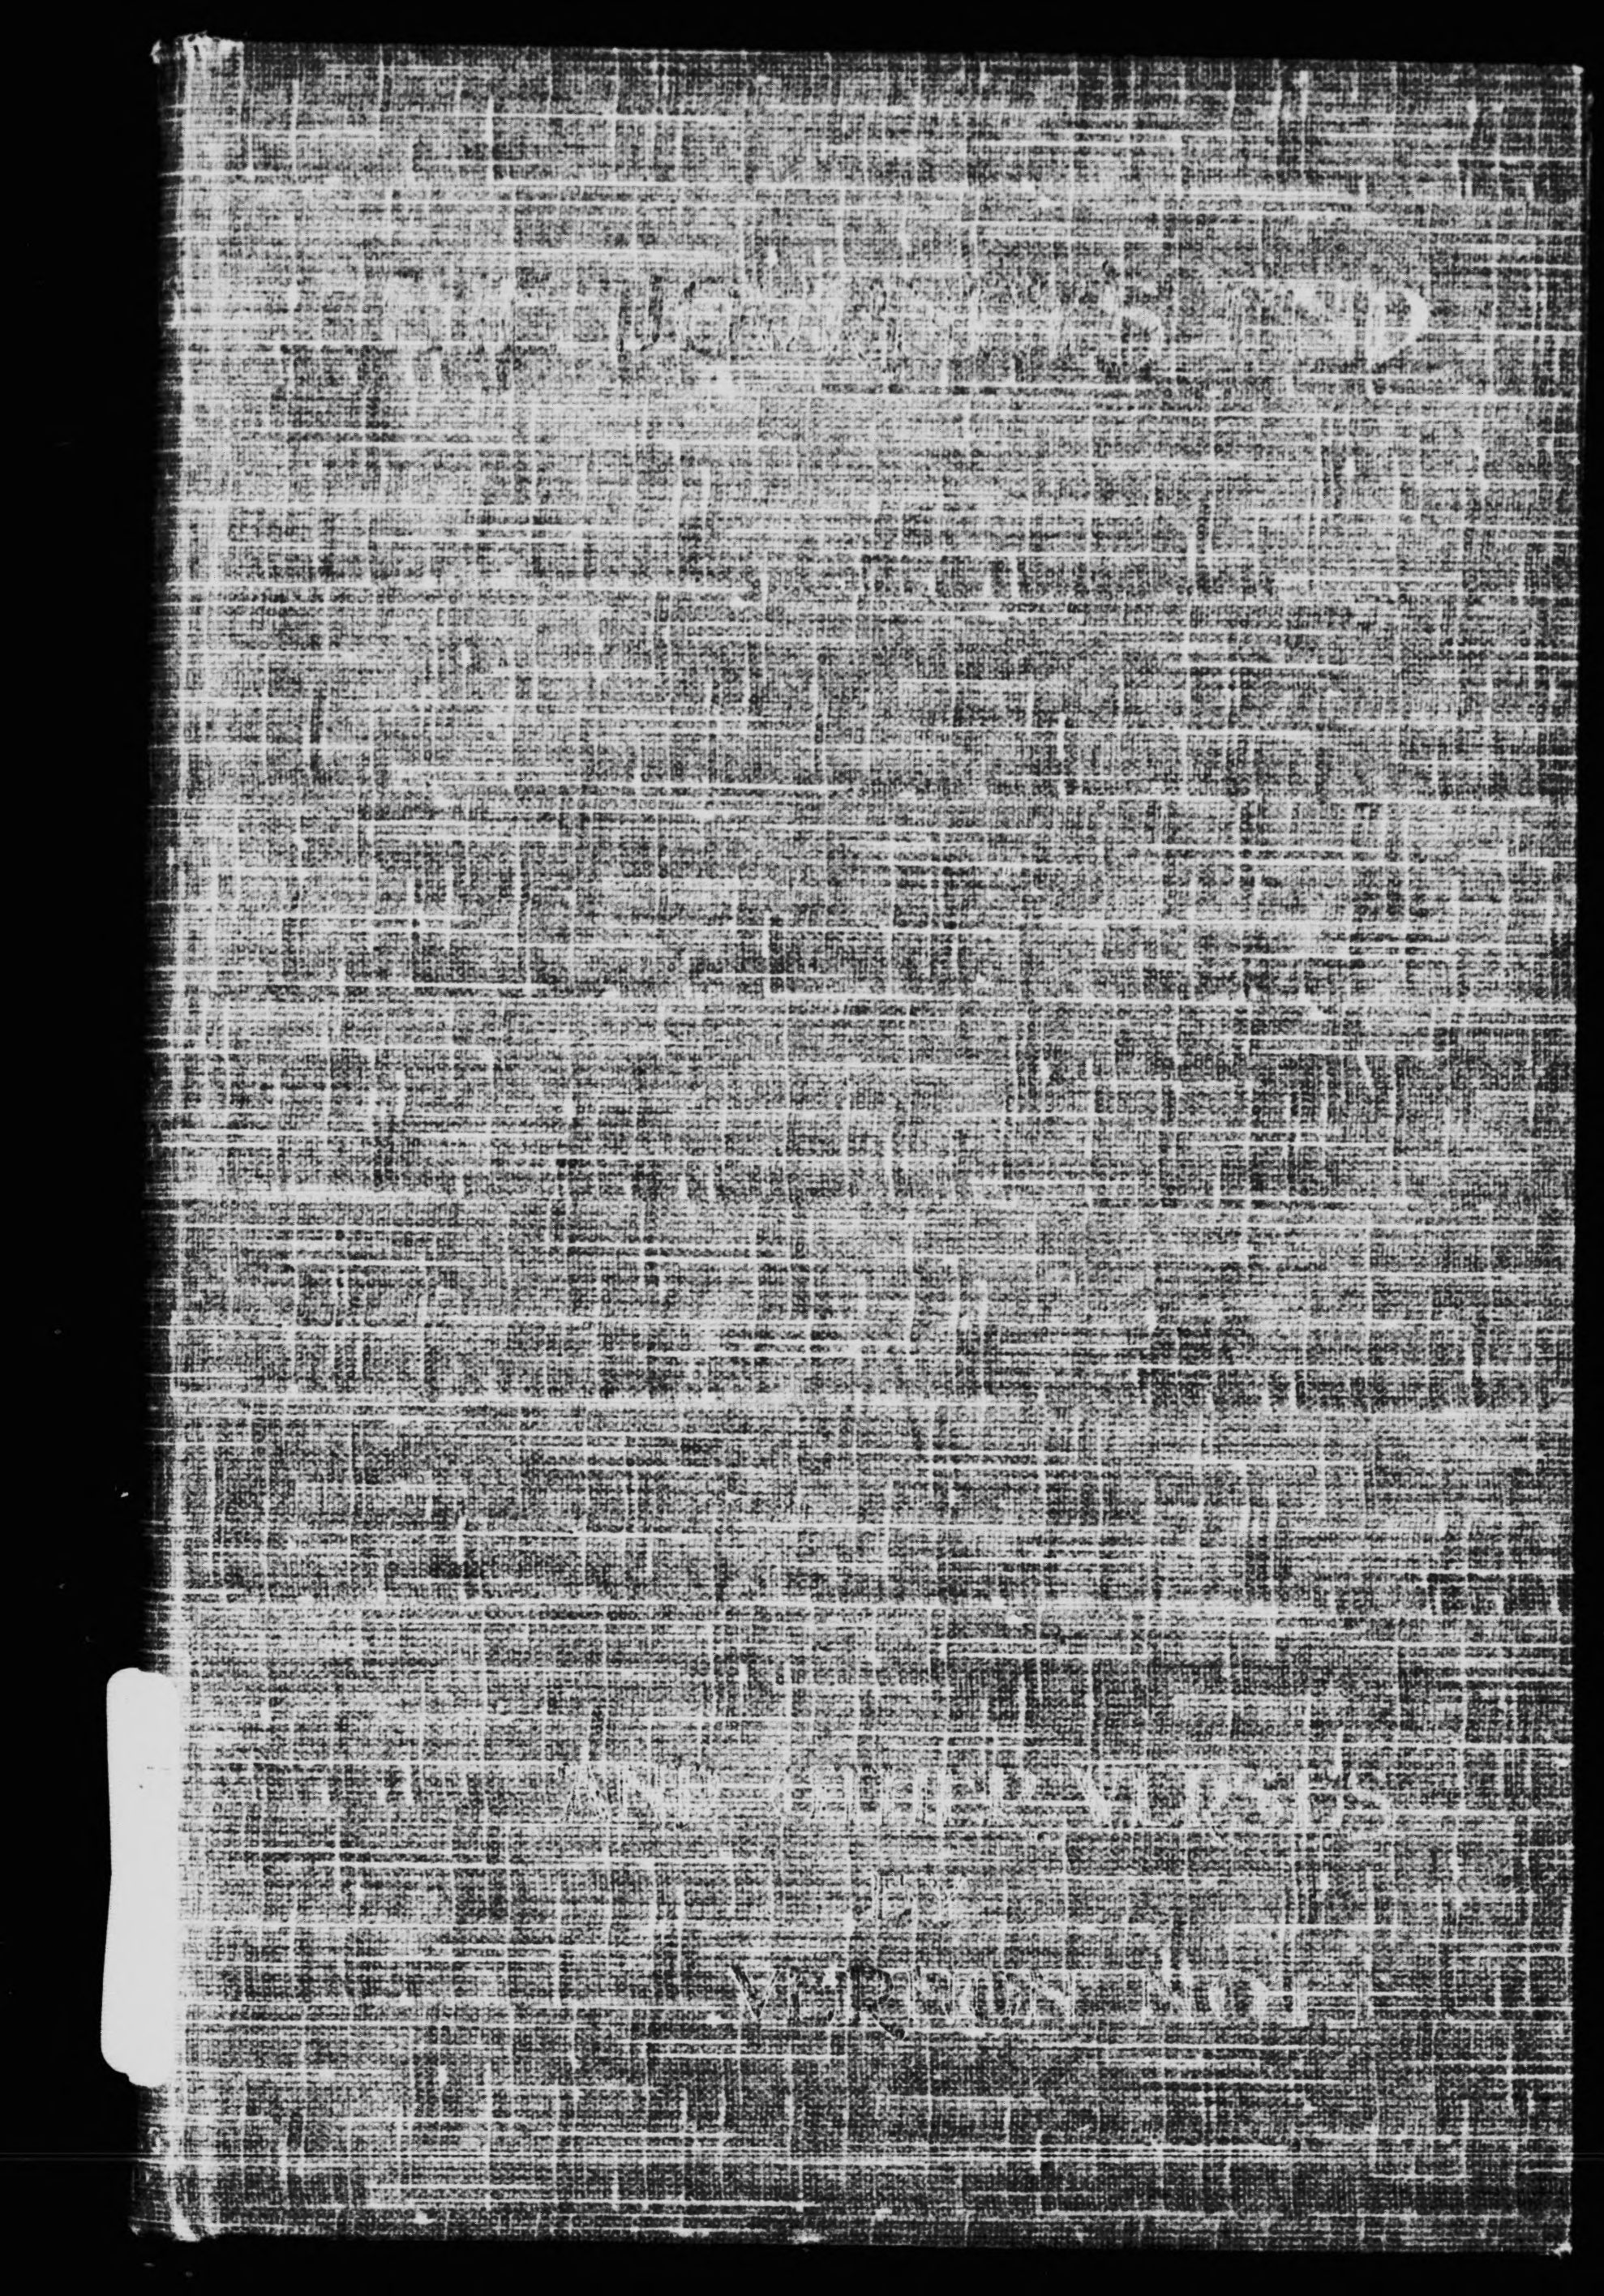 THE JOURNEY'S END
AND OTHER VERSES
BY
VERNON NOTT